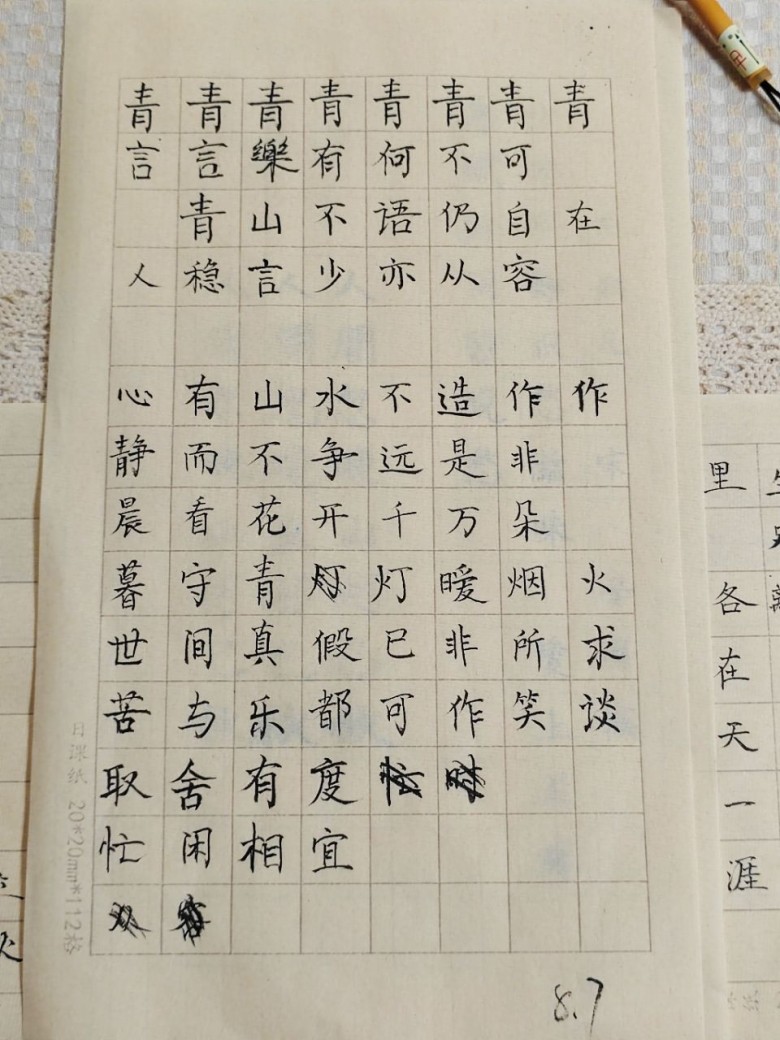 青青青青青青青青
言言樂有何不可
青山不语仍自在
人稳言少亦从容
心有山水不造作作
静而不争远是非
晨看花开千万朵
暮守青灯暖烟火
世间真假已非所求
苦与乐都可作笑谈
取舍有度
忙闲相宜
8.7
日课纸 20*20mm*112格
里
各
在
天
一
涯